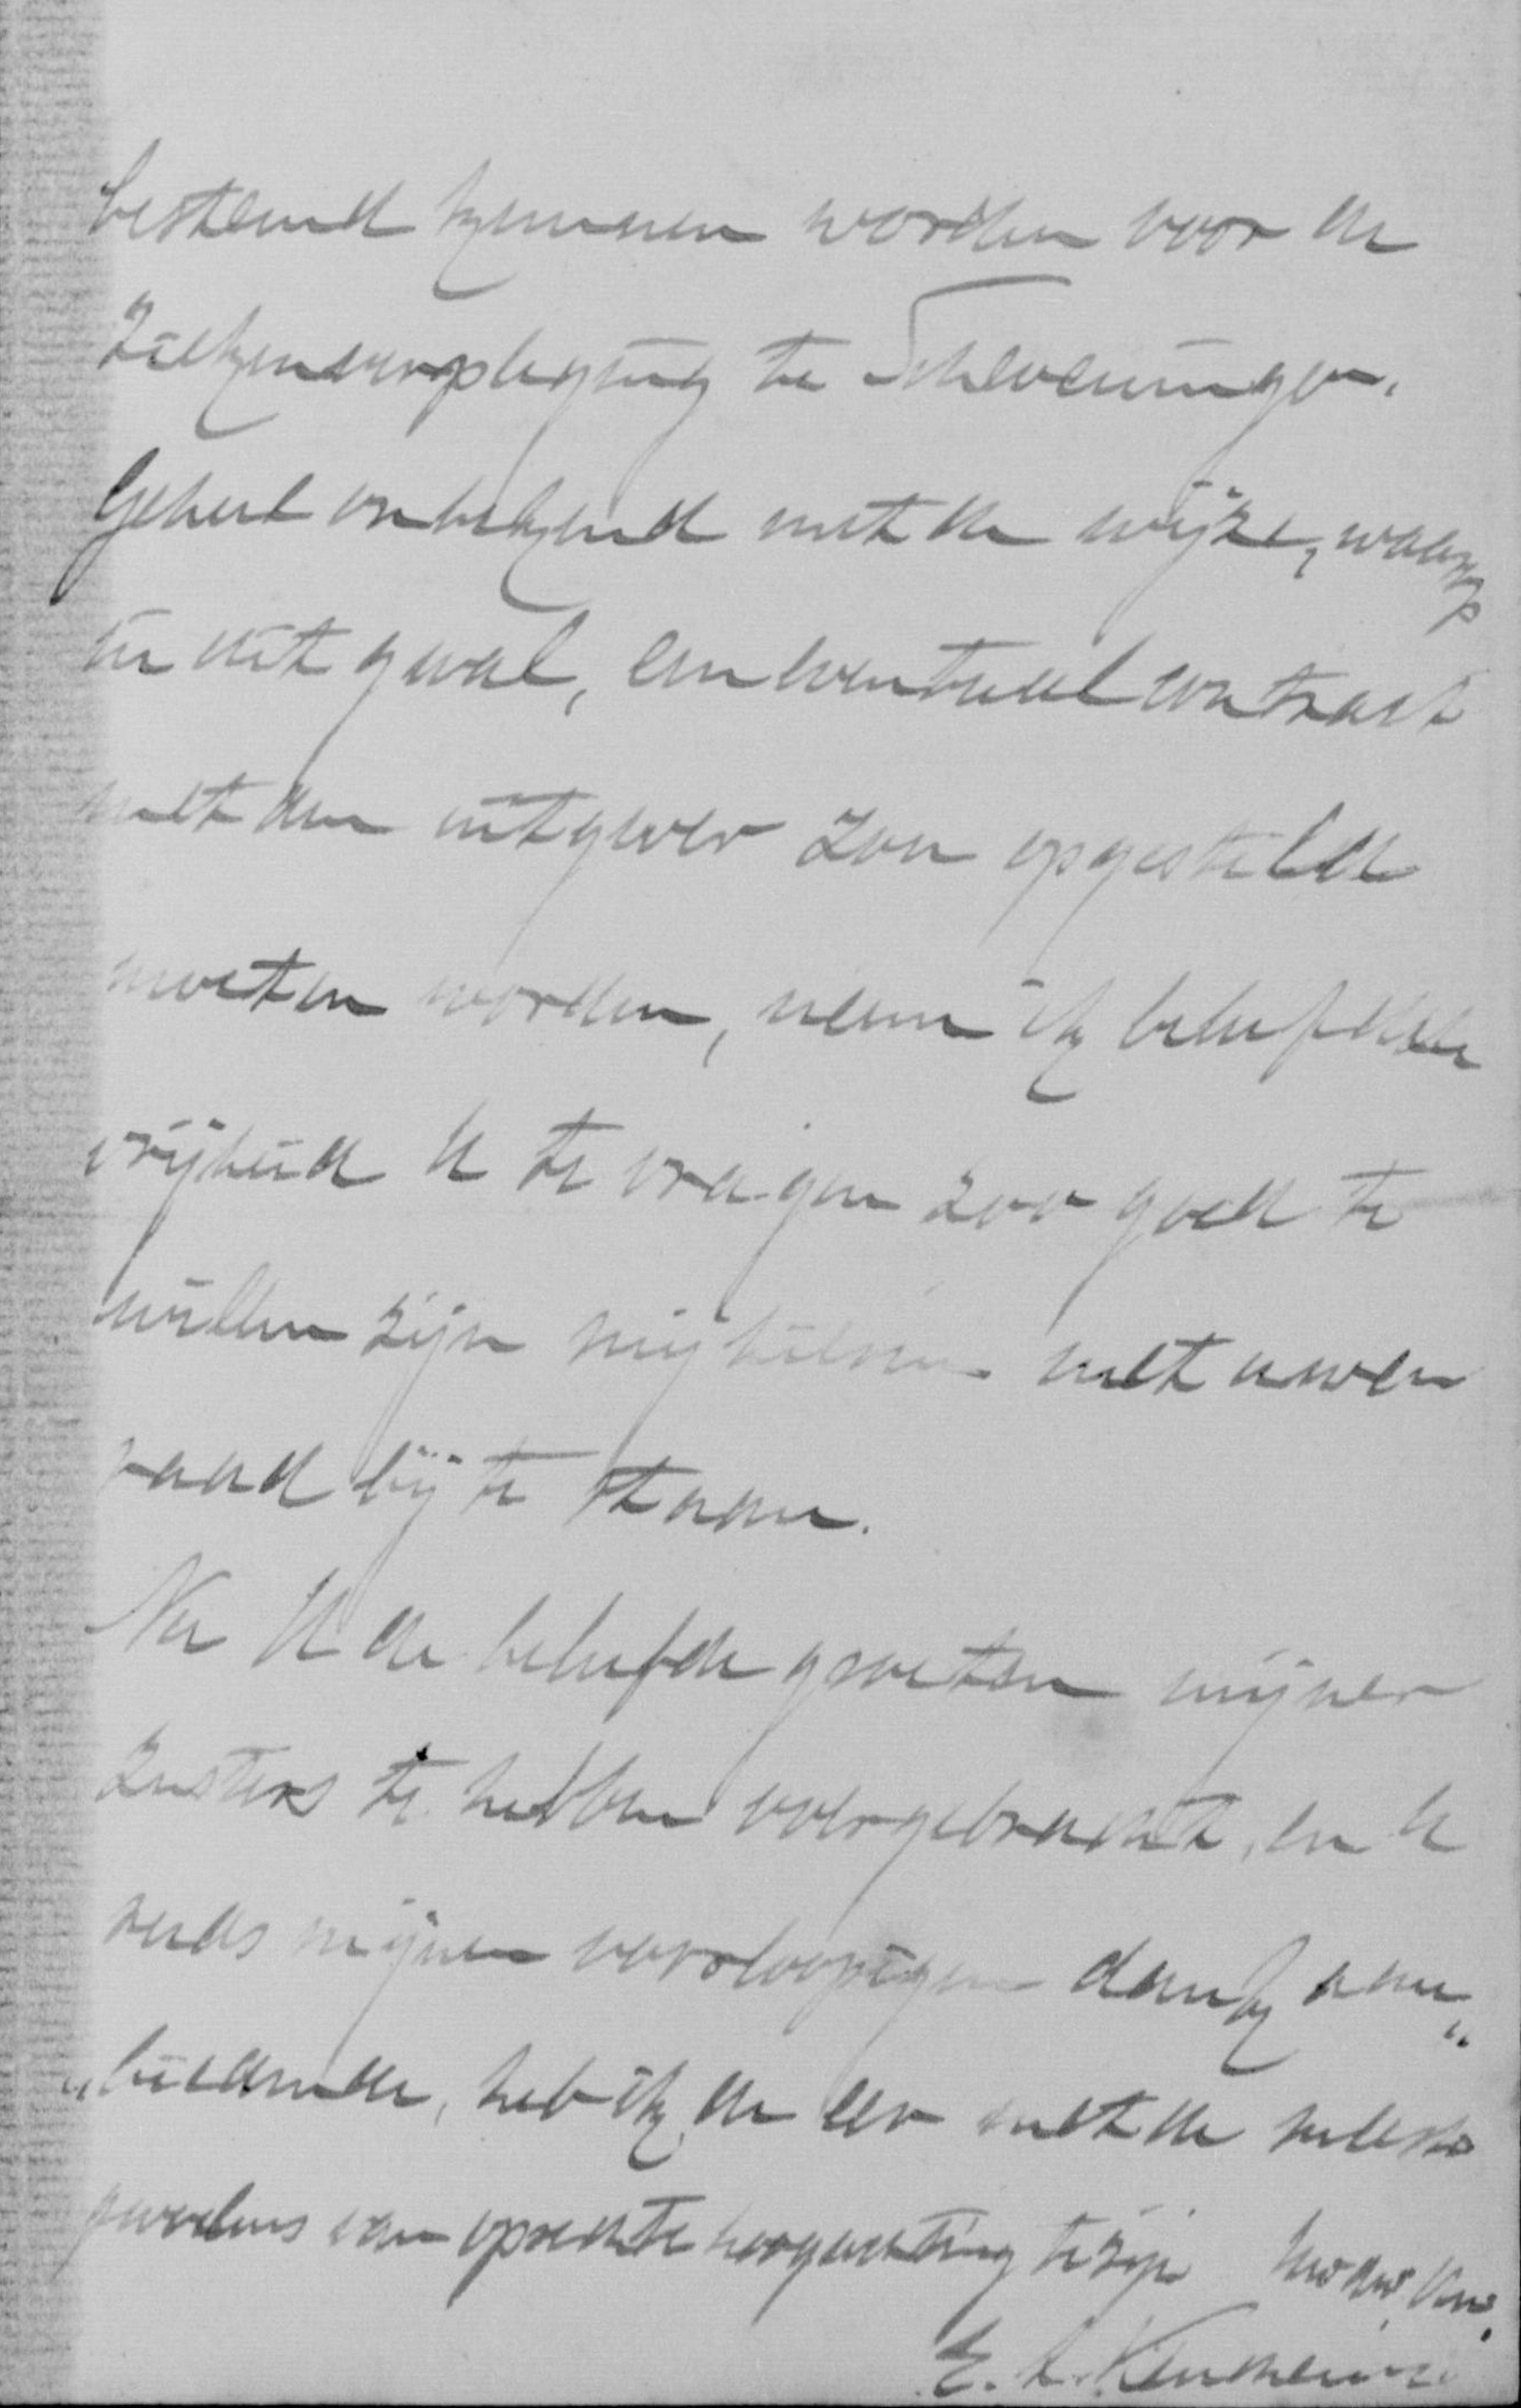 besteed kunnen worden voor de
Ziekenverpleging te Scheveningen.
Geheel onbekend met de wijze, waarop
in dit geval, een eventueel contract
met den uitgever zou opgesteld
moeten worden, neem ik beleefd de
vrijheid U te vragen zoo goed te
willen zijn mij hierin met uwen
raad bij te staan.
Na U de beleefde groeten mijner
Zusters te hebben overgebracht, en U
reeds mijnen voorloopigen dank aan„
„biedende, heb ik de eer met de meeste
gevoelens van oprechte hoogachting te zijn Uw dw.
E.